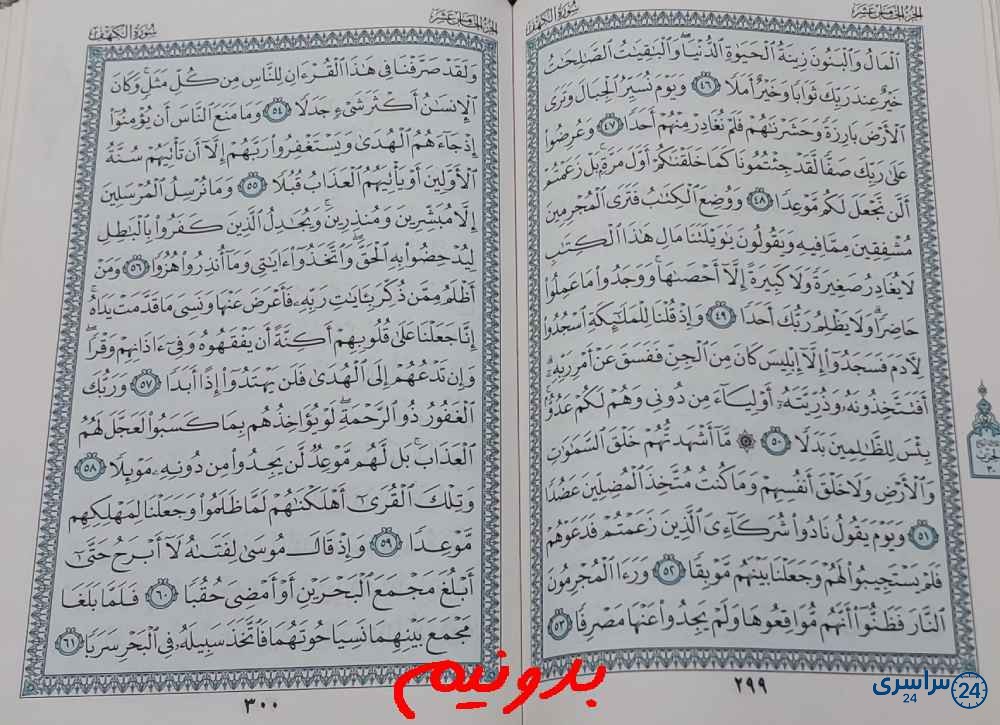 الجزء الخامس عشر
سورة الكهف
ٱلْمَالُ وَٱلْبَنُونَ زِينَةُ ٱلْحَيَوٰةِ ٱلدُّنْيَا وَٱلْبَٰقِيَٰتُ ٱلصَّٰلِحَٰتُ
خَيْرٌ عِندَ رَبِّكَ ثَوَابًا وَخَيْرٌ أَمَلًا ٤٦ وَيَوْمَ نُسَيِّرُ ٱلْجِبَالَ وَتَرَى
ٱلْأَرْضَ بَارِزَةً وَحَشَرْنَٰهُمْ فَلَمْ نُغَادِرْ مِنْهُمْ أَحَدًا ٤٧ وَعُرِضُوا۟
عَلَىٰ رَبِّكَ صَفًّا لَّقَدْ جِئْتُمُونَا كَمَا خَلَقْنَٰكُمْ أَوَّلَ مَرَّةٍۭ بَلْ زَعَمْتُمْ
أَلَّن نَّجْعَلَ لَكُم مَّوْعِدًا ٤٨ وَوُضِعَ ٱلْكِتَٰبُ فَتَرَى ٱلْمُجْرِمِينَ
مُشْفِقِينَ مِمَّا فِيهِ وَيَقُولُونَ يَٰوَيْلَتَنَا مَالِ هَٰذَا ٱلْكِتَٰبِ
لَا يُغَادِرُ صَغِيرَةً وَلَا كَبِيرَةً إِلَّآ أَحْصَىٰهَا وَوَجَدُوا۟ مَا عَمِلُوا۟
حَاضِرًا وَلَا يَظْلِمُ رَبُّكَ أَحَدًا ٤٩ وَإِذْ قُلْنَا لِلْمَلَٰٓئِكَةِ ٱسْجُدُوا۟
لِءَادَمَ فَسَجَدُوٓا۟ إِلَّآ إِبْلِيسَ كَانَ مِنَ ٱلْجِنِّ فَفَسَقَ عَنْ أَمْرِ رَبِّهِۦٓ
أَفَتَتَّخِذُونَهُۥ وَذُرِّيَّتَهُۥٓ أَوْلِيَآءَ مِن دُونِى وَهُمْ لَكُمْ عَدُوٌّۢ
بِئْسَ لِلظَّٰلِمِينَ بَدَلًا ٥٠ ۞ مَّآ أَشْهَدتُّهُمْ خَلْقَ ٱلسَّمَٰوَٰتِ
وَٱلْأَرْضِ وَلَا خَلْقَ أَنفُسِهِمْ وَمَا كُنتُ مُتَّخِذَ ٱلْمُضِلِّينَ عَضُدًا
٥١ وَيَوْمَ يَقُولُ نَادُوا۟ شُرَكَآءِىَ ٱلَّذِينَ زَعَمْتُمْ فَدَعَوْهُمْ
فَلَمْ يَسْتَجِيبُوا۟ لَهُمْ وَجَعَلْنَا بَيْنَهُم مَّوْبِقًا ٥٢ وَرَءَا ٱلْمُجْرِمُونَ
ٱلنَّارَ فَظَنُّوٓا۟ أَنَّهُم مُّوَاقِعُوهَا وَلَمْ يَجِدُوا۟ عَنْهَا مَصْرِفًا ٥٣
٢٩٩
الحزب
٣٠
الجزء الخامس عشر
سورة الكهف
وَلَقَدْ صَرَّفْنَا فِى هَٰذَا ٱلْقُرْءَانِ لِلنَّاسِ مِن كُلِّ مَثَلٍ وَكَانَ
ٱلْإِنسَٰنُ أَكْثَرَ شَىْءٍ جَدَلًا ٥٤ وَمَا مَنَعَ ٱلنَّاسَ أَن يُؤْمِنُوٓا۟
إِذْ جَآءَهُمُ ٱلْهُدَىٰ وَيَسْتَغْفِرُوا۟ رَبَّهُمْ إِلَّآ أَن تَأْتِيَهُمْ سُنَّةُ
ٱلْأَوَّلِينَ أَوْ يَأْتِيَهُمُ ٱلْعَذَابُ قُبُلًا ٥٥ وَمَا نُرْسِلُ ٱلْمُرْسَلِينَ
إِلَّا مُبَشِّرِينَ وَمُنذِرِينَ وَيُجَٰدِلُ ٱلَّذِينَ كَفَرُوا۟ بِٱلْبَٰطِلِ
لِيُدْحِضُوا۟ بِهِ ٱلْحَقَّ وَٱتَّخَذُوٓا۟ ءَايَٰتِى وَمَآ أُنذِرُوا۟ هُزُوًا ٥٦ وَمَنْ
أَظْلَمُ مِمَّن ذُكِّرَ بِـَٔايَٰتِ رَبِّهِۦ فَأَعْرَضَ عَنْهَا وَنَسِىَ مَا قَدَّمَتْ يَدَاهُ
إِنَّا جَعَلْنَا عَلَىٰ قُلُوبِهِمْ أَكِنَّةً أَن يَفْقَهُوهُ وَفِىٓ ءَاذَانِهِمْ وَقْرًا
وَإِن تَدْعُهُمْ إِلَى ٱلْهُدَىٰ فَلَن يَهْتَدُوٓا۟ إِذًا أَبَدًا ٥٧ وَرَبُّكَ
ٱلْغَفُورُ ذُو ٱلرَّحْمَةِ لَوْ يُؤَاخِذُهُم بِمَا كَسَبُوا۟ لَعَجَّلَ لَهُمُ
ٱلْعَذَابَ بَل لَّهُم مَّوْعِدٌ لَّن يَجِدُوا۟ مِن دُونِهِۦ مَوْئِلًا ٥٨
وَتِلْكَ ٱلْقُرَىٰٓ أَهْلَكْنَٰهُمْ لَمَّا ظَلَمُوا۟ وَجَعَلْنَا لِمَهْلِكِهِم
مَّوْعِدًا ٥٩ وَإِذْ قَالَ مُوسَىٰ لِفَتَىٰهُ لَآ أَبْرَحُ حَتَّىٰٓ
أَبْلُغَ مَجْمَعَ ٱلْبَحْرَيْنِ أَوْ أَمْضِىَ حُقُبًا ٦٠ فَلَمَّا بَلَغَا
مَجْمَعَ بَيْنِهِمَا نَسِيَا حُوتَهُمَا فَٱتَّخَذَ سَبِيلَهُۥ فِى ٱلْبَحْرِ سَرَبًا ٦١
٣٠٠
بدونیم
سراسری
24
24